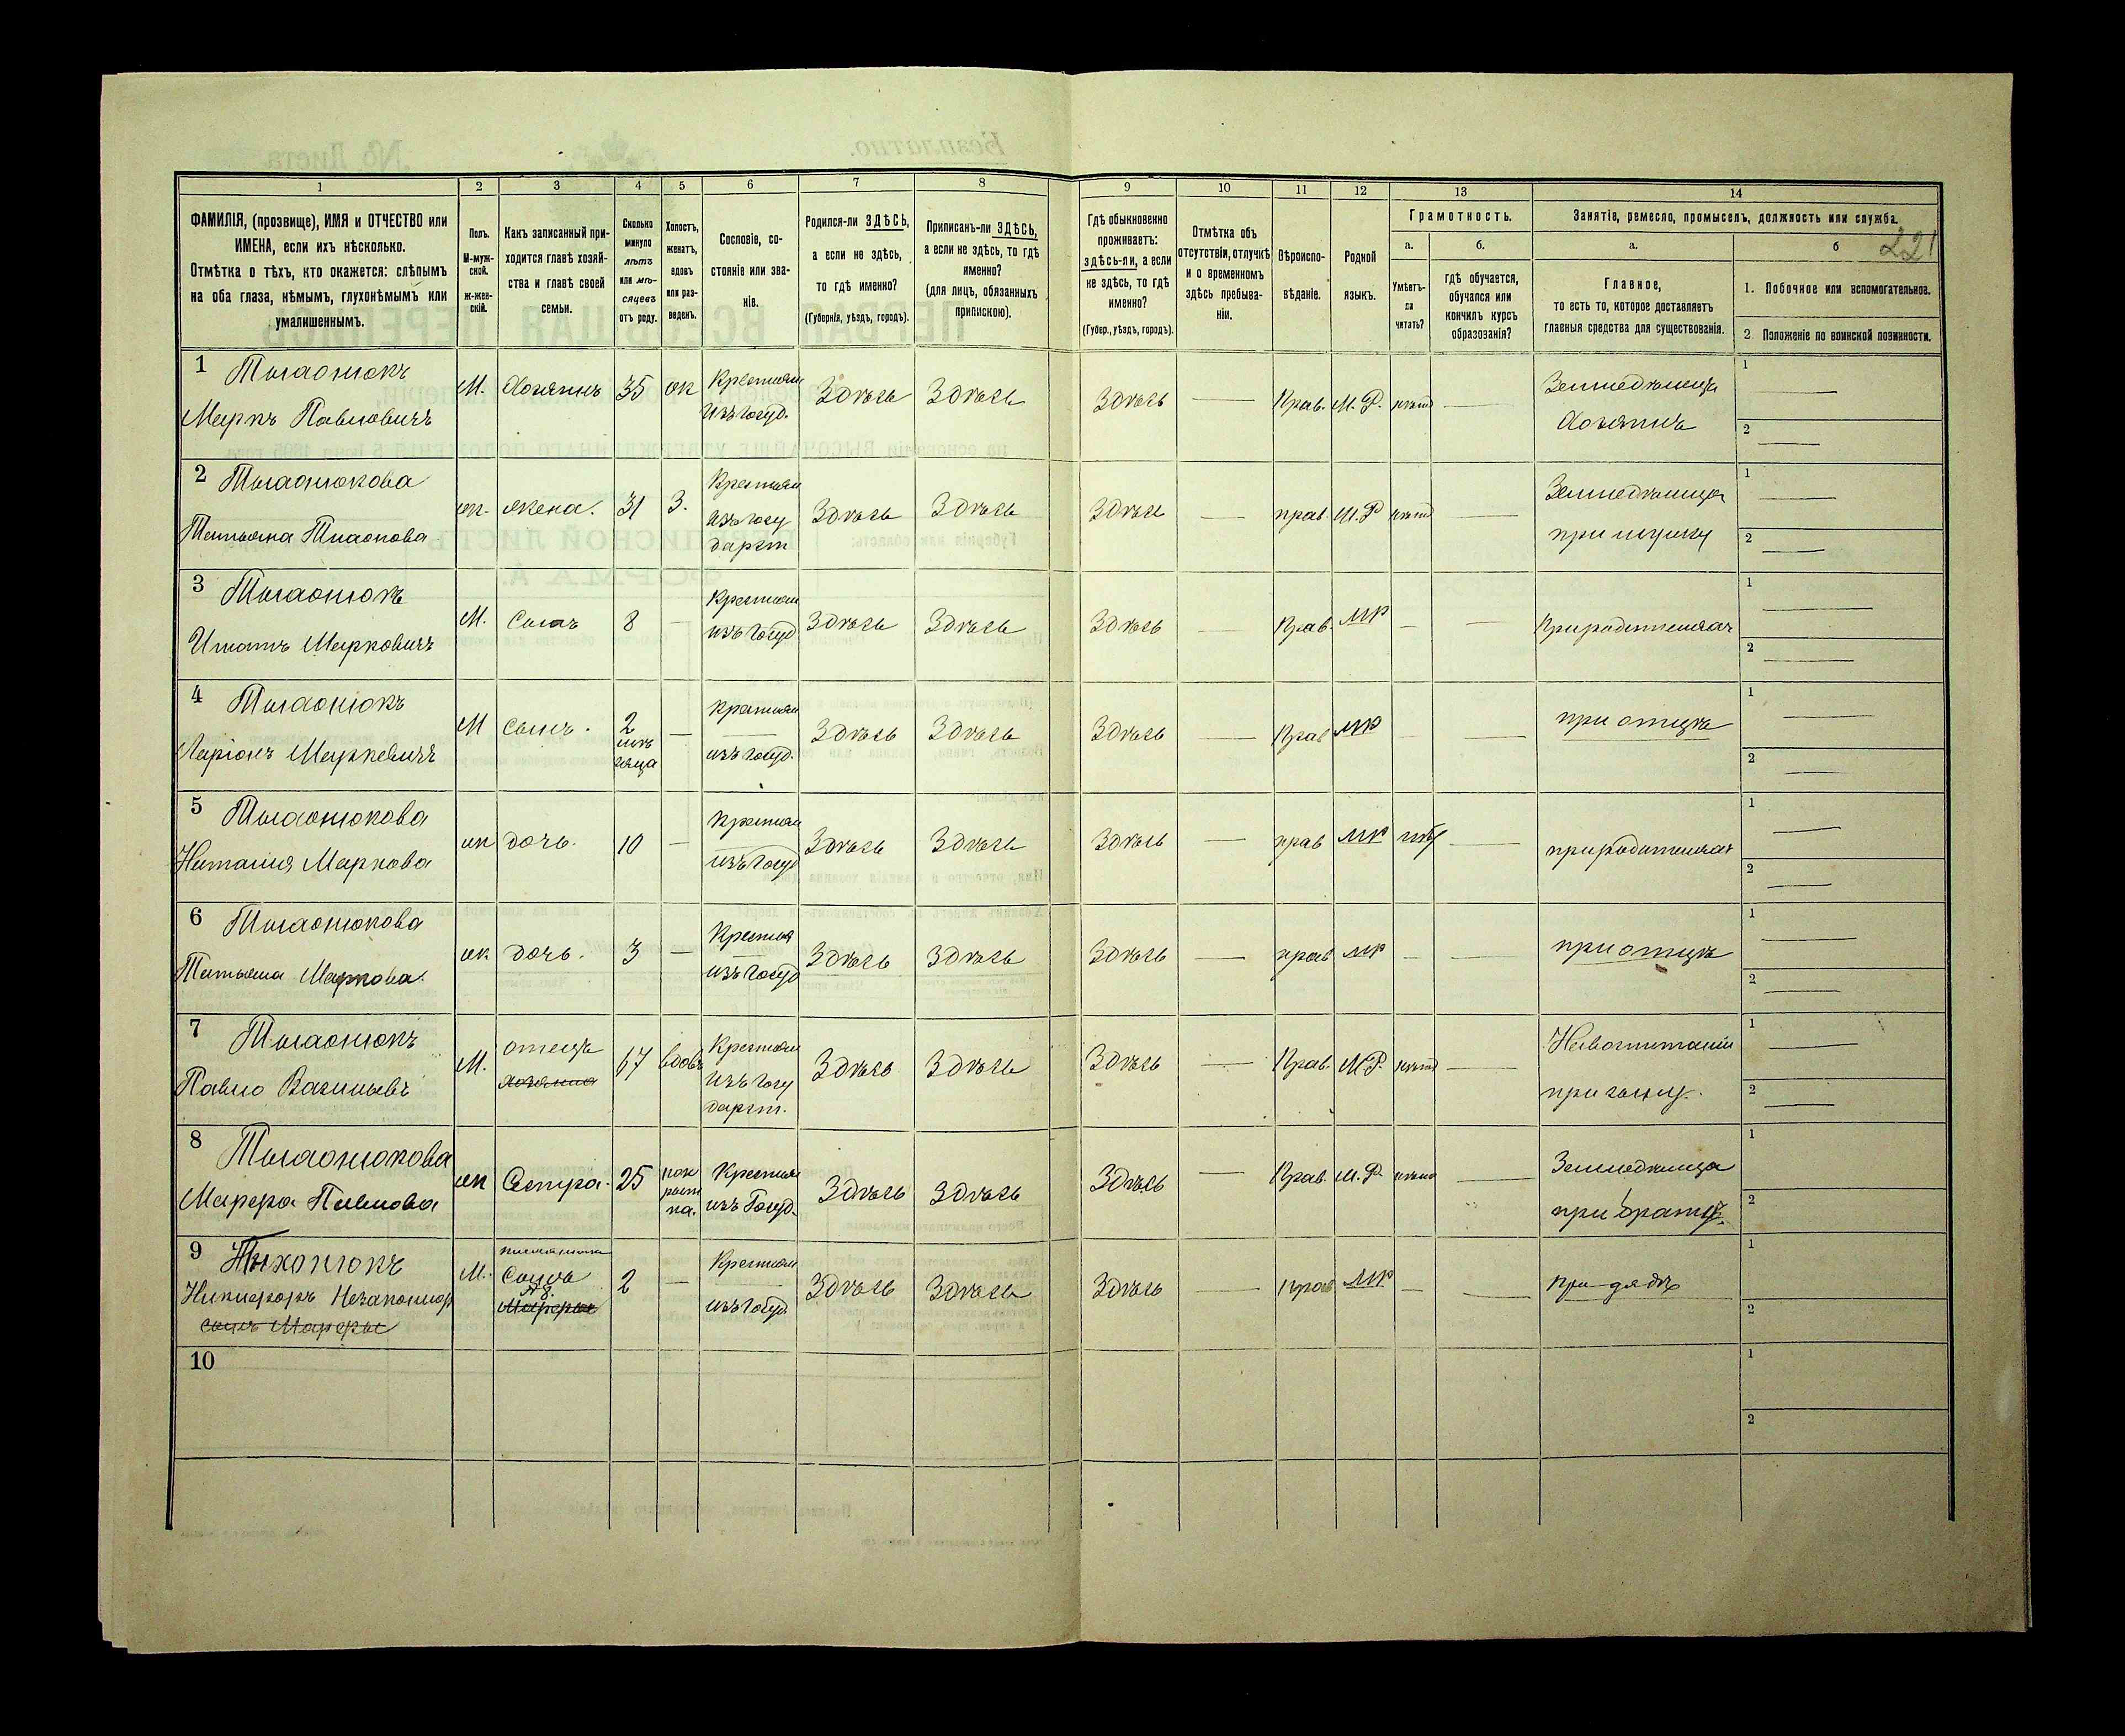 1 2 3 4 5 6 7 8 9 10 11 12 13 14
ФАМИЛІЯ, (прозвище), ИМЯ и ОТЧЕСТВО или
ИМЕНА, если ихъ нѣсколько.
Отмѣтка о тѣхъ, кто окажется: слѣпымъ
на оба глаза, нѣмымъ, глухонѣмымъ или
умалишеннымъ.
Полъ.
М-муж-
ской.
ж-жен-
скій.
Какъ записанный при-
ходится главѣ хозяй-
ства и главѣ своей
семьи.
Сколько
минуло
лѣтъ
или мѣ-
сяцевъ
отъ роду.
Холостъ,
женатъ,
вдовъ
или раз-
веденъ.
Сословіе, со-
стояніе или зва-
ніе.
Родился-ли ЗДѢСЬ,
а если не здѣсь,
то гдѣ именно?
(Губернія, уѣздъ, городъ).
Приписанъ-ли ЗДѢСЬ,
а если не здѣсь, то гдѣ
именно?
(для лицъ, обязанныхъ
припискою).
Гдѣ обыкновенно
проживаетъ:
здѣсь-ли, а если
не здѣсь, то гдѣ
именно?
(Губер., уѣздъ, городъ).
Отмѣтка объ
отсутствіи, отлучкѣ
и о временномъ
здѣсь пребыва-
ніи.
Вѣроиспо-
вѣданіе.
Родной
языкъ.
Грамотность.
а.
Умѣетъ-
ли
читать?
б.
Гдѣ обучается,
обучался или
кончилъ курсъ
образованія?
Занятіе, ремесло, промыселъ, должность или служба.
а.
Главное,
то есть то, которое доставляетъ
главныя средства для существованія.
б
221
1. Побочное или вспомогательное.
2 Положеніе по воинской повинности.
1
Маркъ Павловичъ
М. Хозяинъ 35 Крестьян Здѣсь Здѣсь Здѣсь Прав. М. Р. нѣтъ
изъ госуд.
Хозяинъ
1
2
2
жена. 31 З. Крестьян Здѣсь Здѣсь Здѣсь прав. М. Р нѣтъ
изъ госу
дарст
при мужу
1
2
3
Игнатъ Марковичъ
М. Сынъ 8 Крестьян Здѣсь Здѣсь Здѣсь Прав. МР
изъ госуд
1
2
4
Ларіонъ Марковичъ
М сынъ. 2 Крестьян Здѣсь Здѣсь Здѣсь Прав МР при отцѣ
мѣ
сяца
изъ госуд.
1
2
5
Наталія Маркова
дочь. 10 Крестьян Здѣсь Здѣсь Здѣсь прав МР нѣт
изъ госуд
1
2
6
Татьяна Маркова.
дочь. 3 Крестья Здѣсь Здѣсь Здѣсь прав МР при отцѣ
изъ госуд
1
2
7
Павло Васильевъ
М. отецъ 67 вдовъ Крестьян Здѣсь Здѣсь Здѣсь Прав. М. Р. нѣтъ
хозяина
изъ госу
дарст.
при сыну.
1
2
8
Марфа Павлова
Сестра. 25 Крестьян Здѣсь Здѣсь Здѣсь Прав. М. Р. нѣтъ
пок
рыт
ка.
изъ Госуд.
при брату.
1
2
9 Тихонюкъ
Никифоръ
сынъ Марфы
М. 2 Крестьян Здѣсь Здѣсь Здѣсь прав МР при дядѣ
№ 8.
Марфы
изъ госуд
1
2
10
1
2